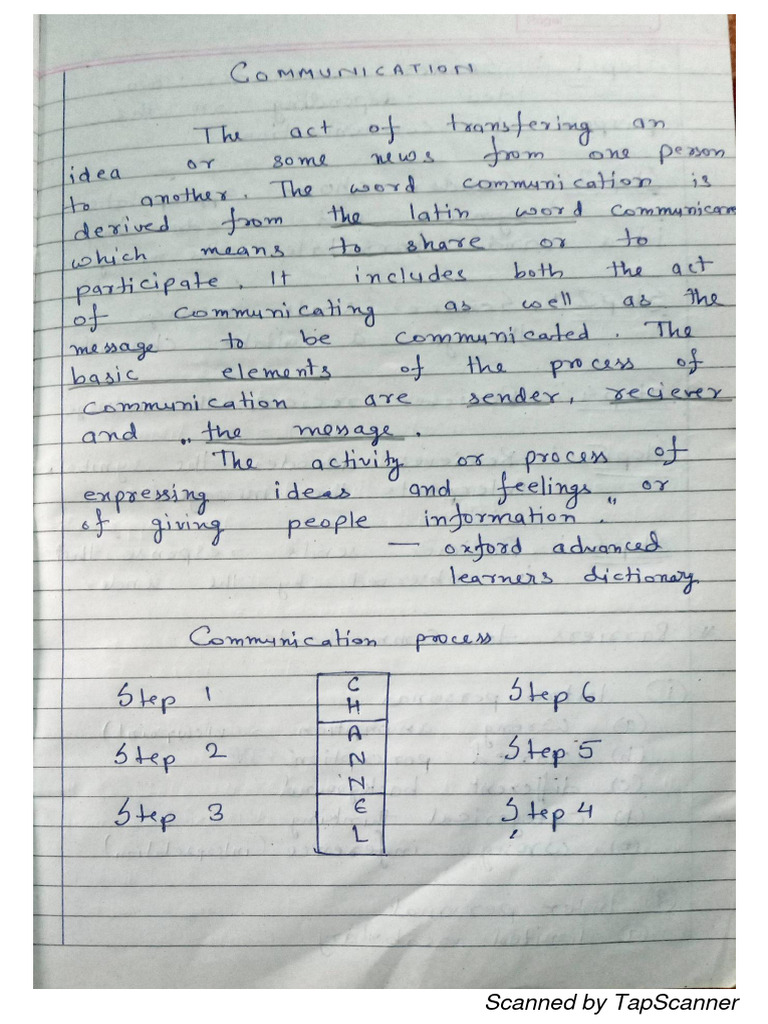 COMMUNICATION
The act of transfering an
idea or some news from one person
to another. The word communication is
derived from the latin word communicare
which means to share or to
participate. It includes both the act
of communicating as well as the
message to be communicated. The
basic elements of the process of
communication are sender, reciever
and the message.
"The activity or process of
expressing ideas and feelings or
of giving people information."
— oxford advanced
learners dictionary
Communication process
Step 1 C H Step 6
Step 2 A N N Step 5
Step 3 E L Step 4
Scanned by TapScanner